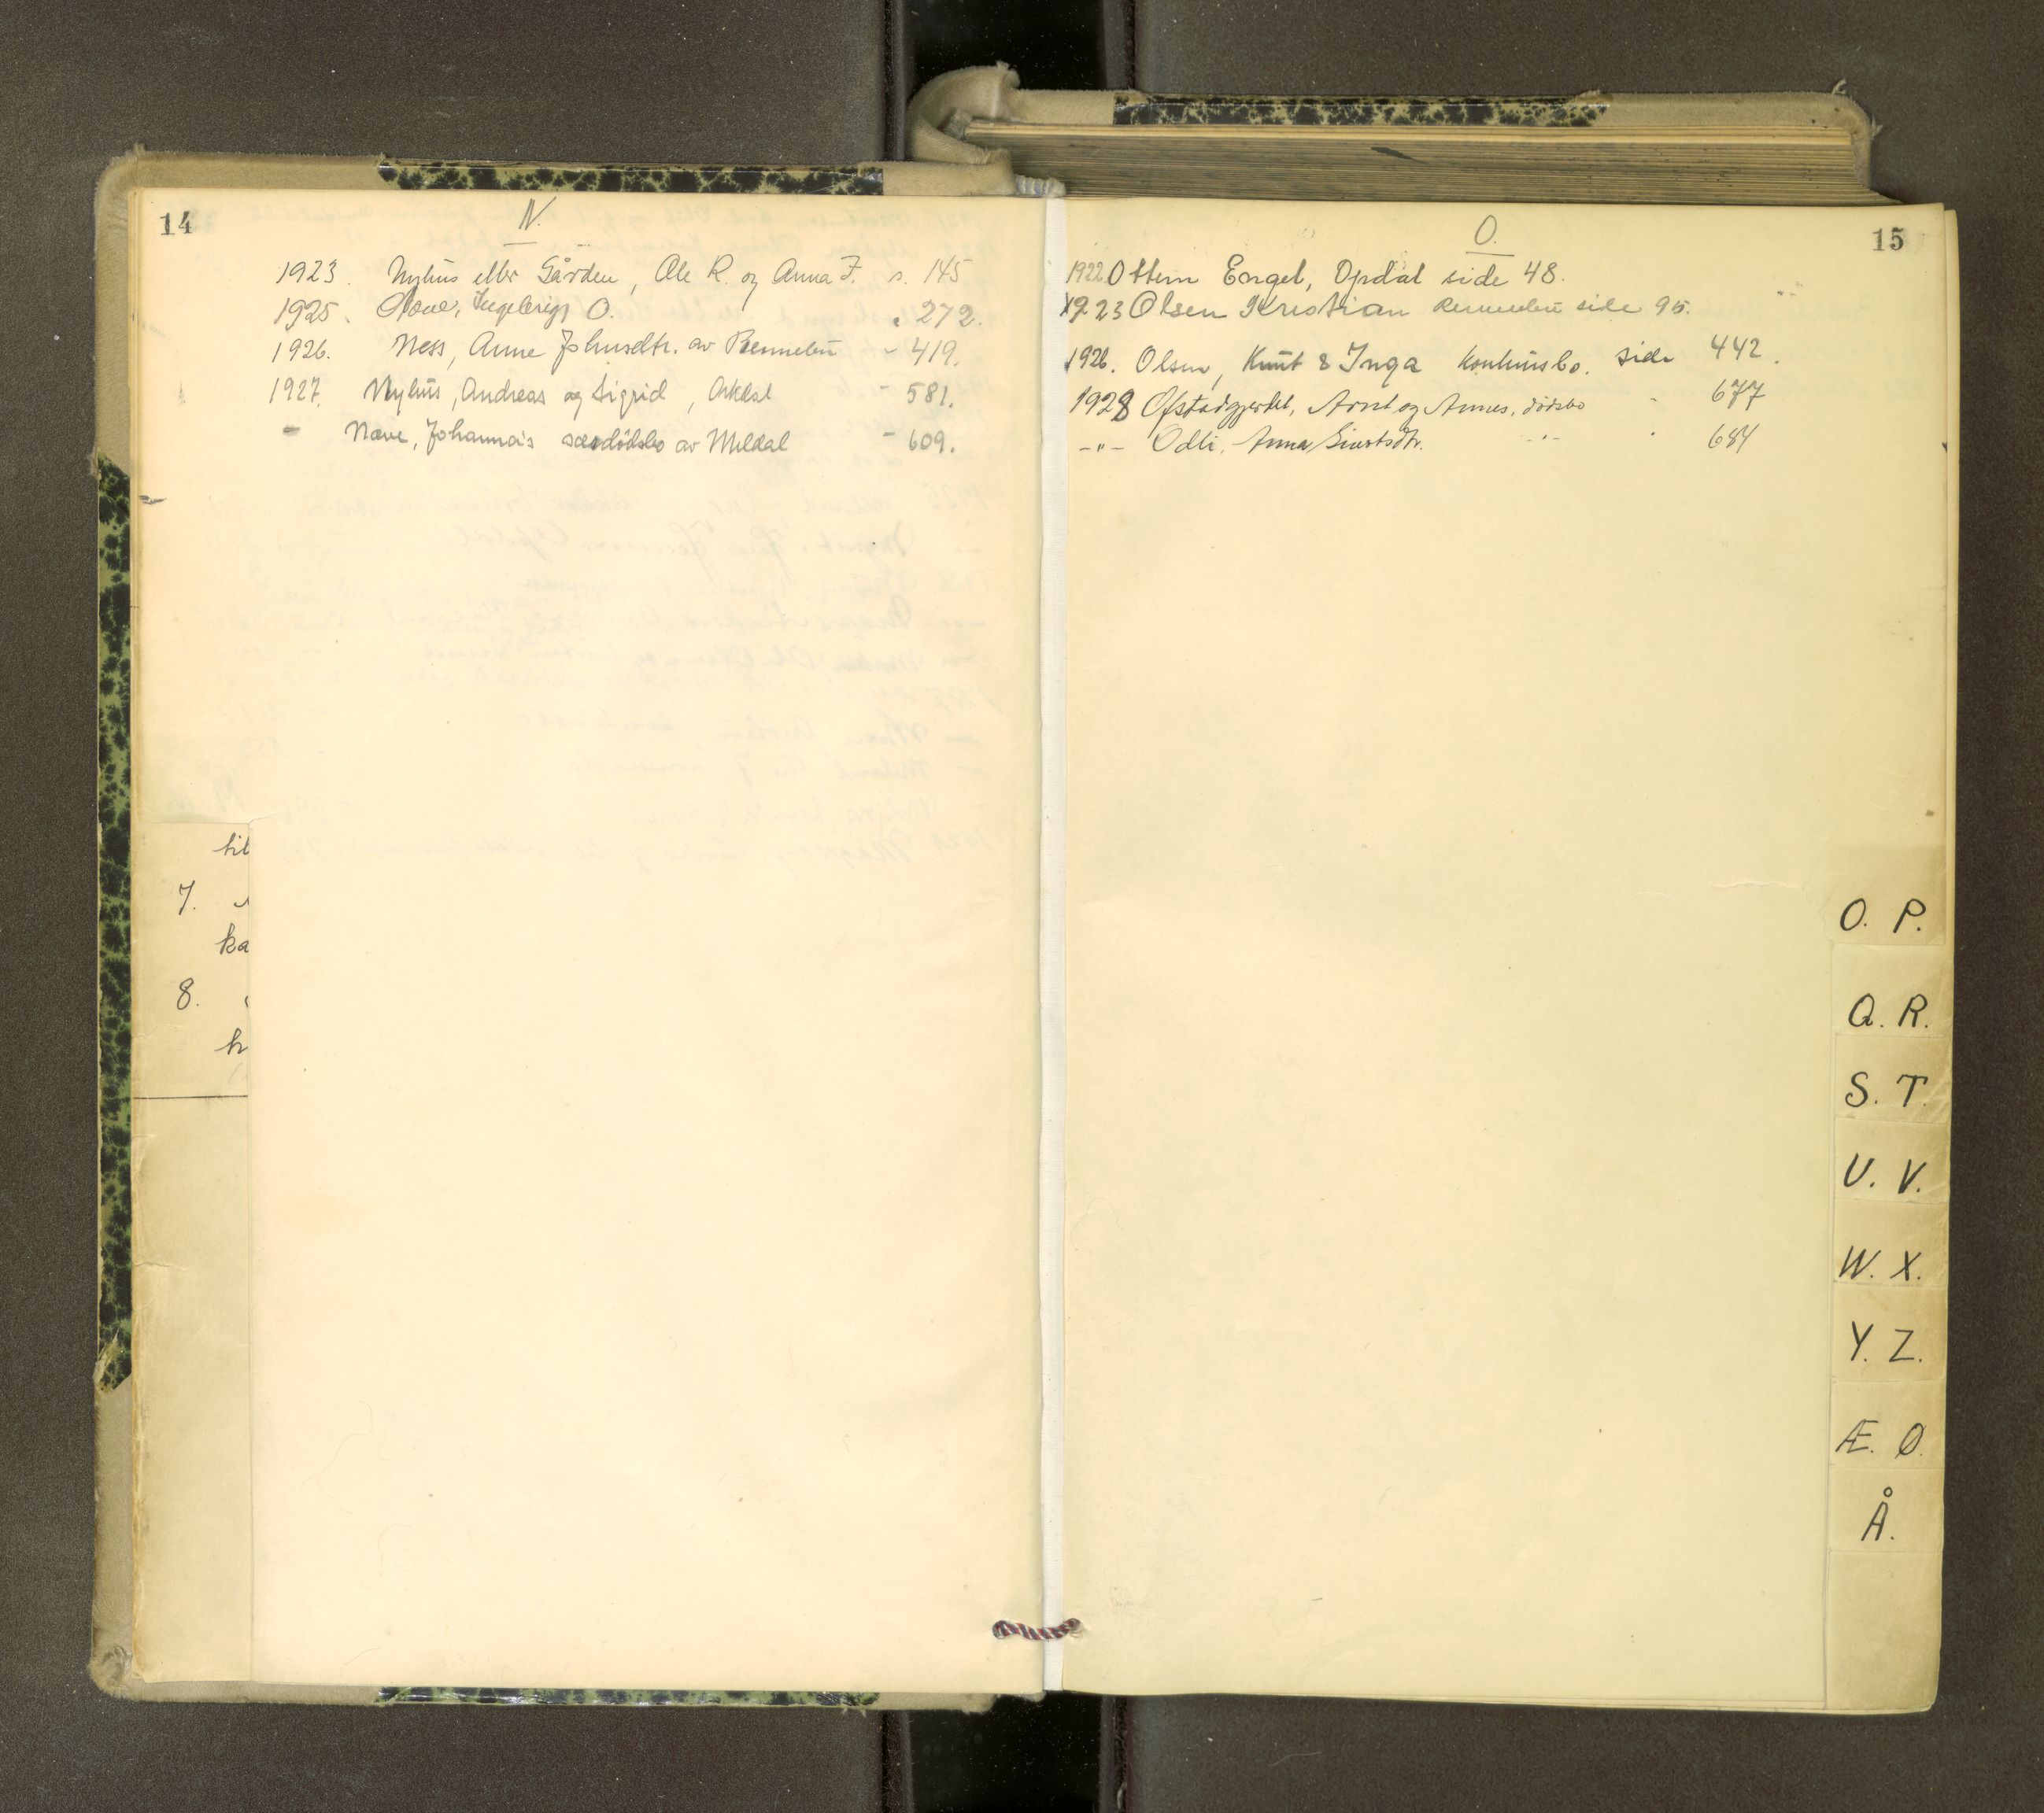 14
N.
1923. Nyhus eller Gården, Ole R. og Anna F. s. 145
1925. Næve, Ingebrigt O. " 272.
1926. Ness, Anne Johnsdtr. av Rennebu - 419.
1927. Nyhus, Andreas og Sigrid, Orkdal - 581.
- Næve, Johanna's særdødsbo av Meldal - 609.
til
7.
ka
8.
h
15
O.
1922 Ottem Engel, Opdal side 48.
1923 Olsen Kristian Rennebu side 95.
1926. Olsen, Knut & Inga konkursbo. side 442.
1928 Ofstadgjerdet, Arnt og Annes, dødsbo - 677
-"- Odli, Anna Sivertsdtr. -"- " 684
O. P.
Q. R.
S. T.
U. V.
W. X.
Y. Z.
Æ. Ø.
Å.